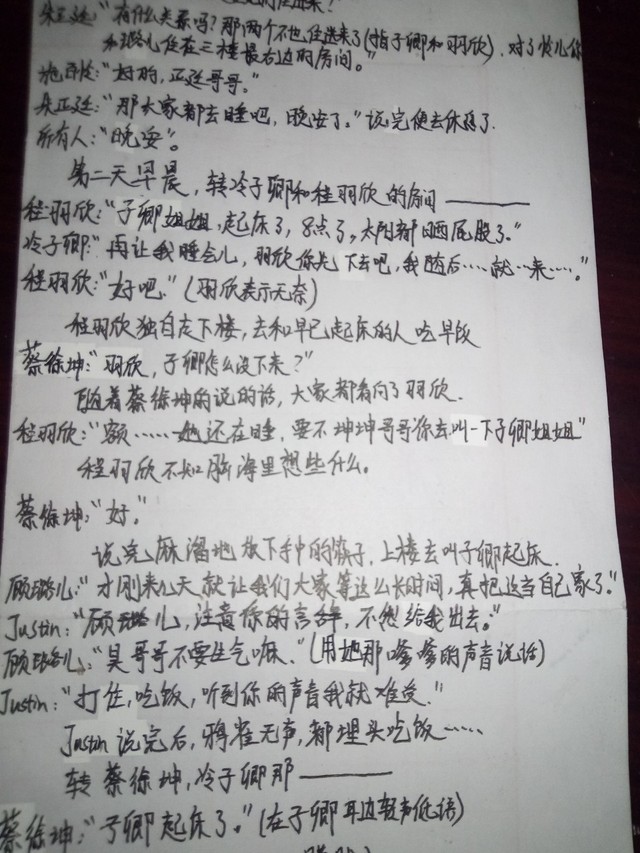 朱正廷:“有什么关系吗?那两个不也住进来了(指子卿和羽欣).对了怜儿你
和璐儿住在三楼最右边的房间。”
施百怜:“好的,正廷哥哥。”
朱正廷:“那大家都去睡吧,晚安了。”说完便去休息了.
所有人:“晚安”。
第二天早晨,转冷子卿和程羽欣的房间————
程羽欣:“子卿姐姐,起床了,8点了,太阳都晒屁股了。”
冷子卿:“再让我睡会儿,羽欣你先下去吧,我随后……就…来……。”
程羽欣:“好吧.”(羽欣表示无奈)
程羽欣独自走下楼,去和早已起床的人吃早饭
蔡徐坤:“羽欣,子卿怎么没下来?”
随着蔡徐坤的说的话,大家都看向了羽欣.
程羽欣:“额……她还在睡,要不坤坤哥哥你去叫一下子卿姐姐”
程羽欣不知脑海里想些什么。
蔡徐坤:“好。”
说完麻溜地放下手中的筷子,上楼去叫子卿起床.
顾璐儿:“才刚来几天就让我们大家等这么长时间,真把这当自己家了。”
Justin:“顾璐儿,注意你的言辞,不然给我出去。”
顾璐儿:“昊哥哥不要生气嘛.”(用她那嗲嗲的声音说话)
Justin:“打住,吃饭,听到你的声音我就难受.”
Justin说完后,鸦雀无声,都埋头吃饭……
转蔡徐坤,冷子卿那————
蔡徐坤:“子卿起床了。”(在子卿耳边轻声低语)